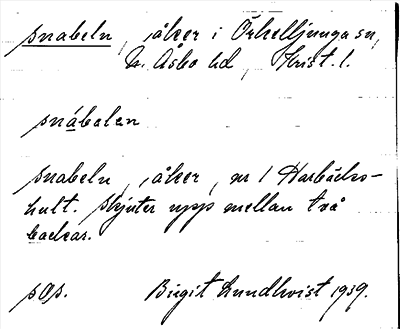 snabeln, åker i Örkelljunga sn,
N. Åsbo hd, Krist. l.
snábalan
snabeln, åker, nr 1 Harbäcks-
hult. Skjuter upp mellan två
backar.
sOs. Birgit Lundkvist 1939.